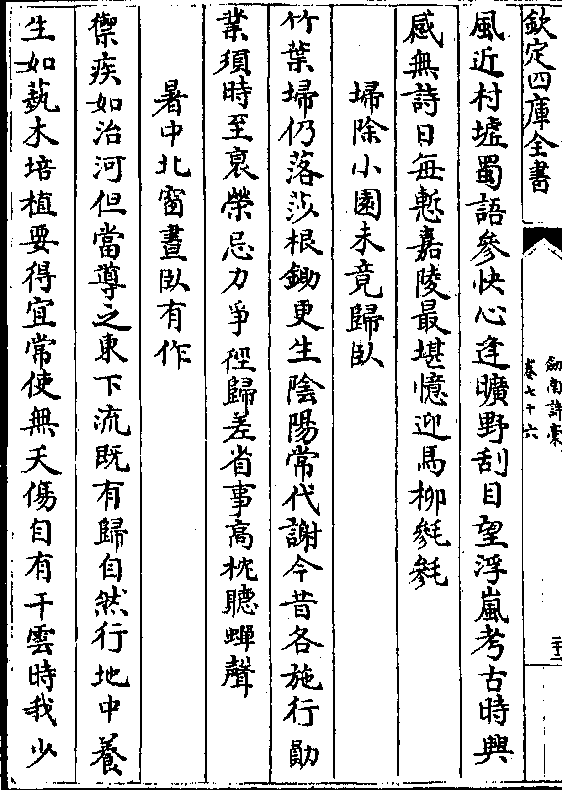 欽定四庫全書
劒南詩稾
卷七十六
風近村墟蜀語參快心逢曠野刮目望浮嵐考古時興
感無詩日每慙嘉陵最堪憶迎馬柳毿毿
埽除小園未竟歸臥
竹葉埽仍落莎根鋤更生陰陽常代謝今昔各施行勛
業須時至衰榮忌力爭徑歸差省事高枕聽蟬聲
暑中北窗晝臥有作
禦疾如治河但當導之東下流既有歸自然行地中養
生如蓺木培植要得宜常使無夭傷自有干雲時我少